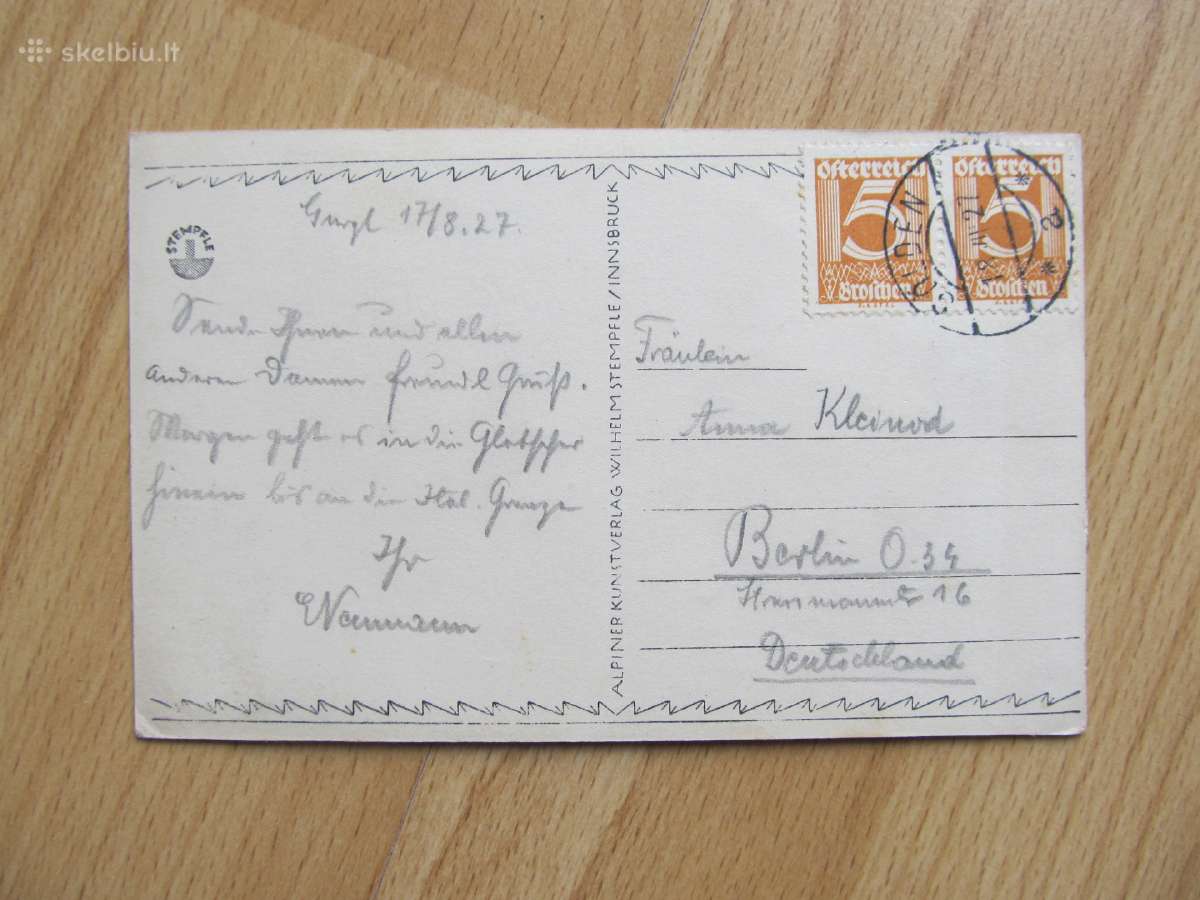 skelbiu.lt
Gurgl 17/8.27.
STEMPFLE
Sende Ihnen und allen
anderen Damen freundl Gruß.
Morgen geht es in die Gletscher
hinein bis an die Ital. Grenze
Ihr
Neumann
ALPINER KUNSTVERLAG WILHELM STEMPFLE/INNSBRUCK
Österreich Österreich
5 5
Groschen Groschen
Fräulein
Anna Kleinod
Berlin O. 34
16
Deutschland